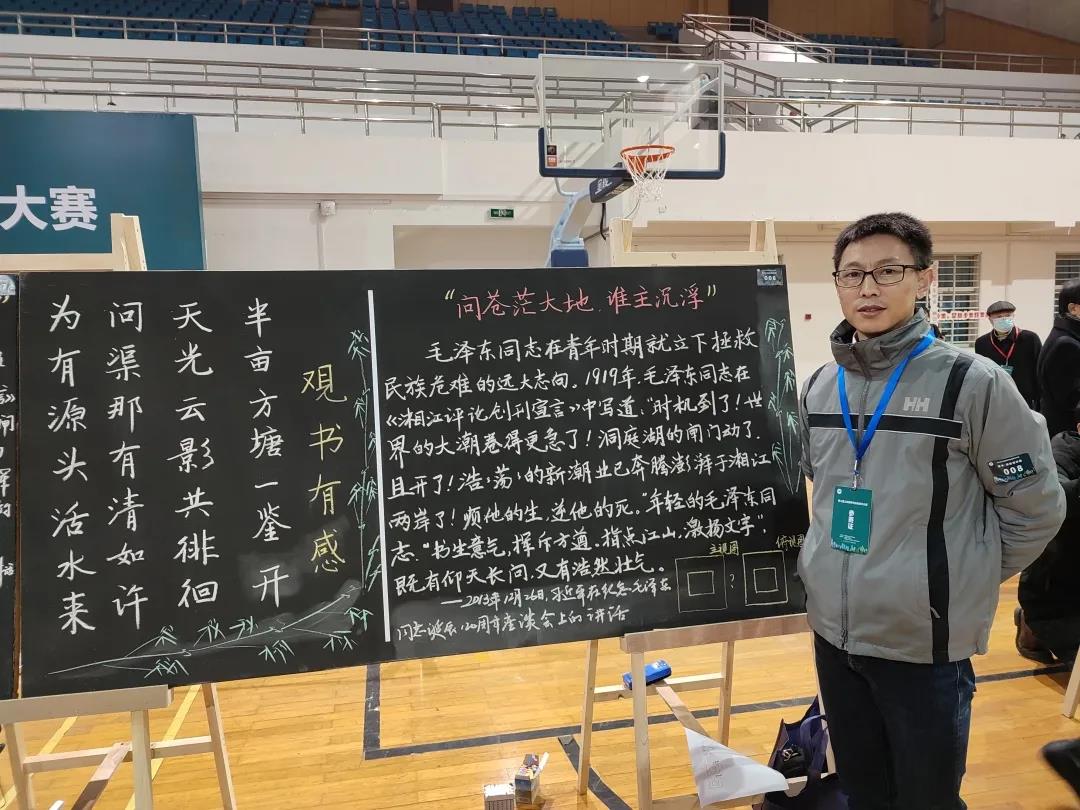 大赛
观书有感
半亩方塘一鉴开
天光云影共徘徊
问渠那有清如许
为有源头活水来
"问苍茫大地,谁主沉浮"
毛泽东同志在青年时期就立下拯救
民族危难的远大志向。1919年,毛泽东同志在
《湘江评论创刊宣言》中写道,"时机到了!世
界的大潮卷得更急了!洞庭湖的闸门动了,
且开了!浩浩荡荡的新潮业已奔腾澎湃于湘江
两岸了!顺他的生,逆他的死。"年轻的毛泽东同
志,"书生意气,挥斥方遒。指点江山,激扬文字"
既有仰天长问,又有浩然壮气。
——2013年12月26日,习近平在纪念毛泽东
同志诞辰120周年座谈会上的讲话
主视图
?
俯视图
008
HH
008
参赛证